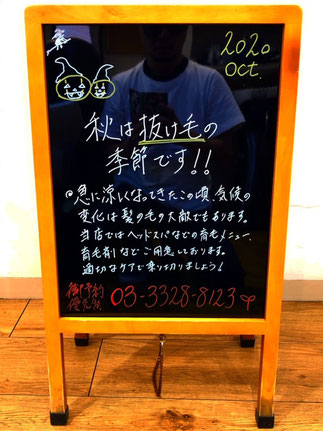 2020
oct.
秋は抜け毛の
季節です!!
急に涼しくなってきたこの頃、気候の
変化は髪の毛の大敵でもあります。
当店ではヘッドスパなどの育毛メニュー、
育毛剤などご用意しております。
適切なケアで乗り切りましょう!
御予約
優先制
03-3328-8123